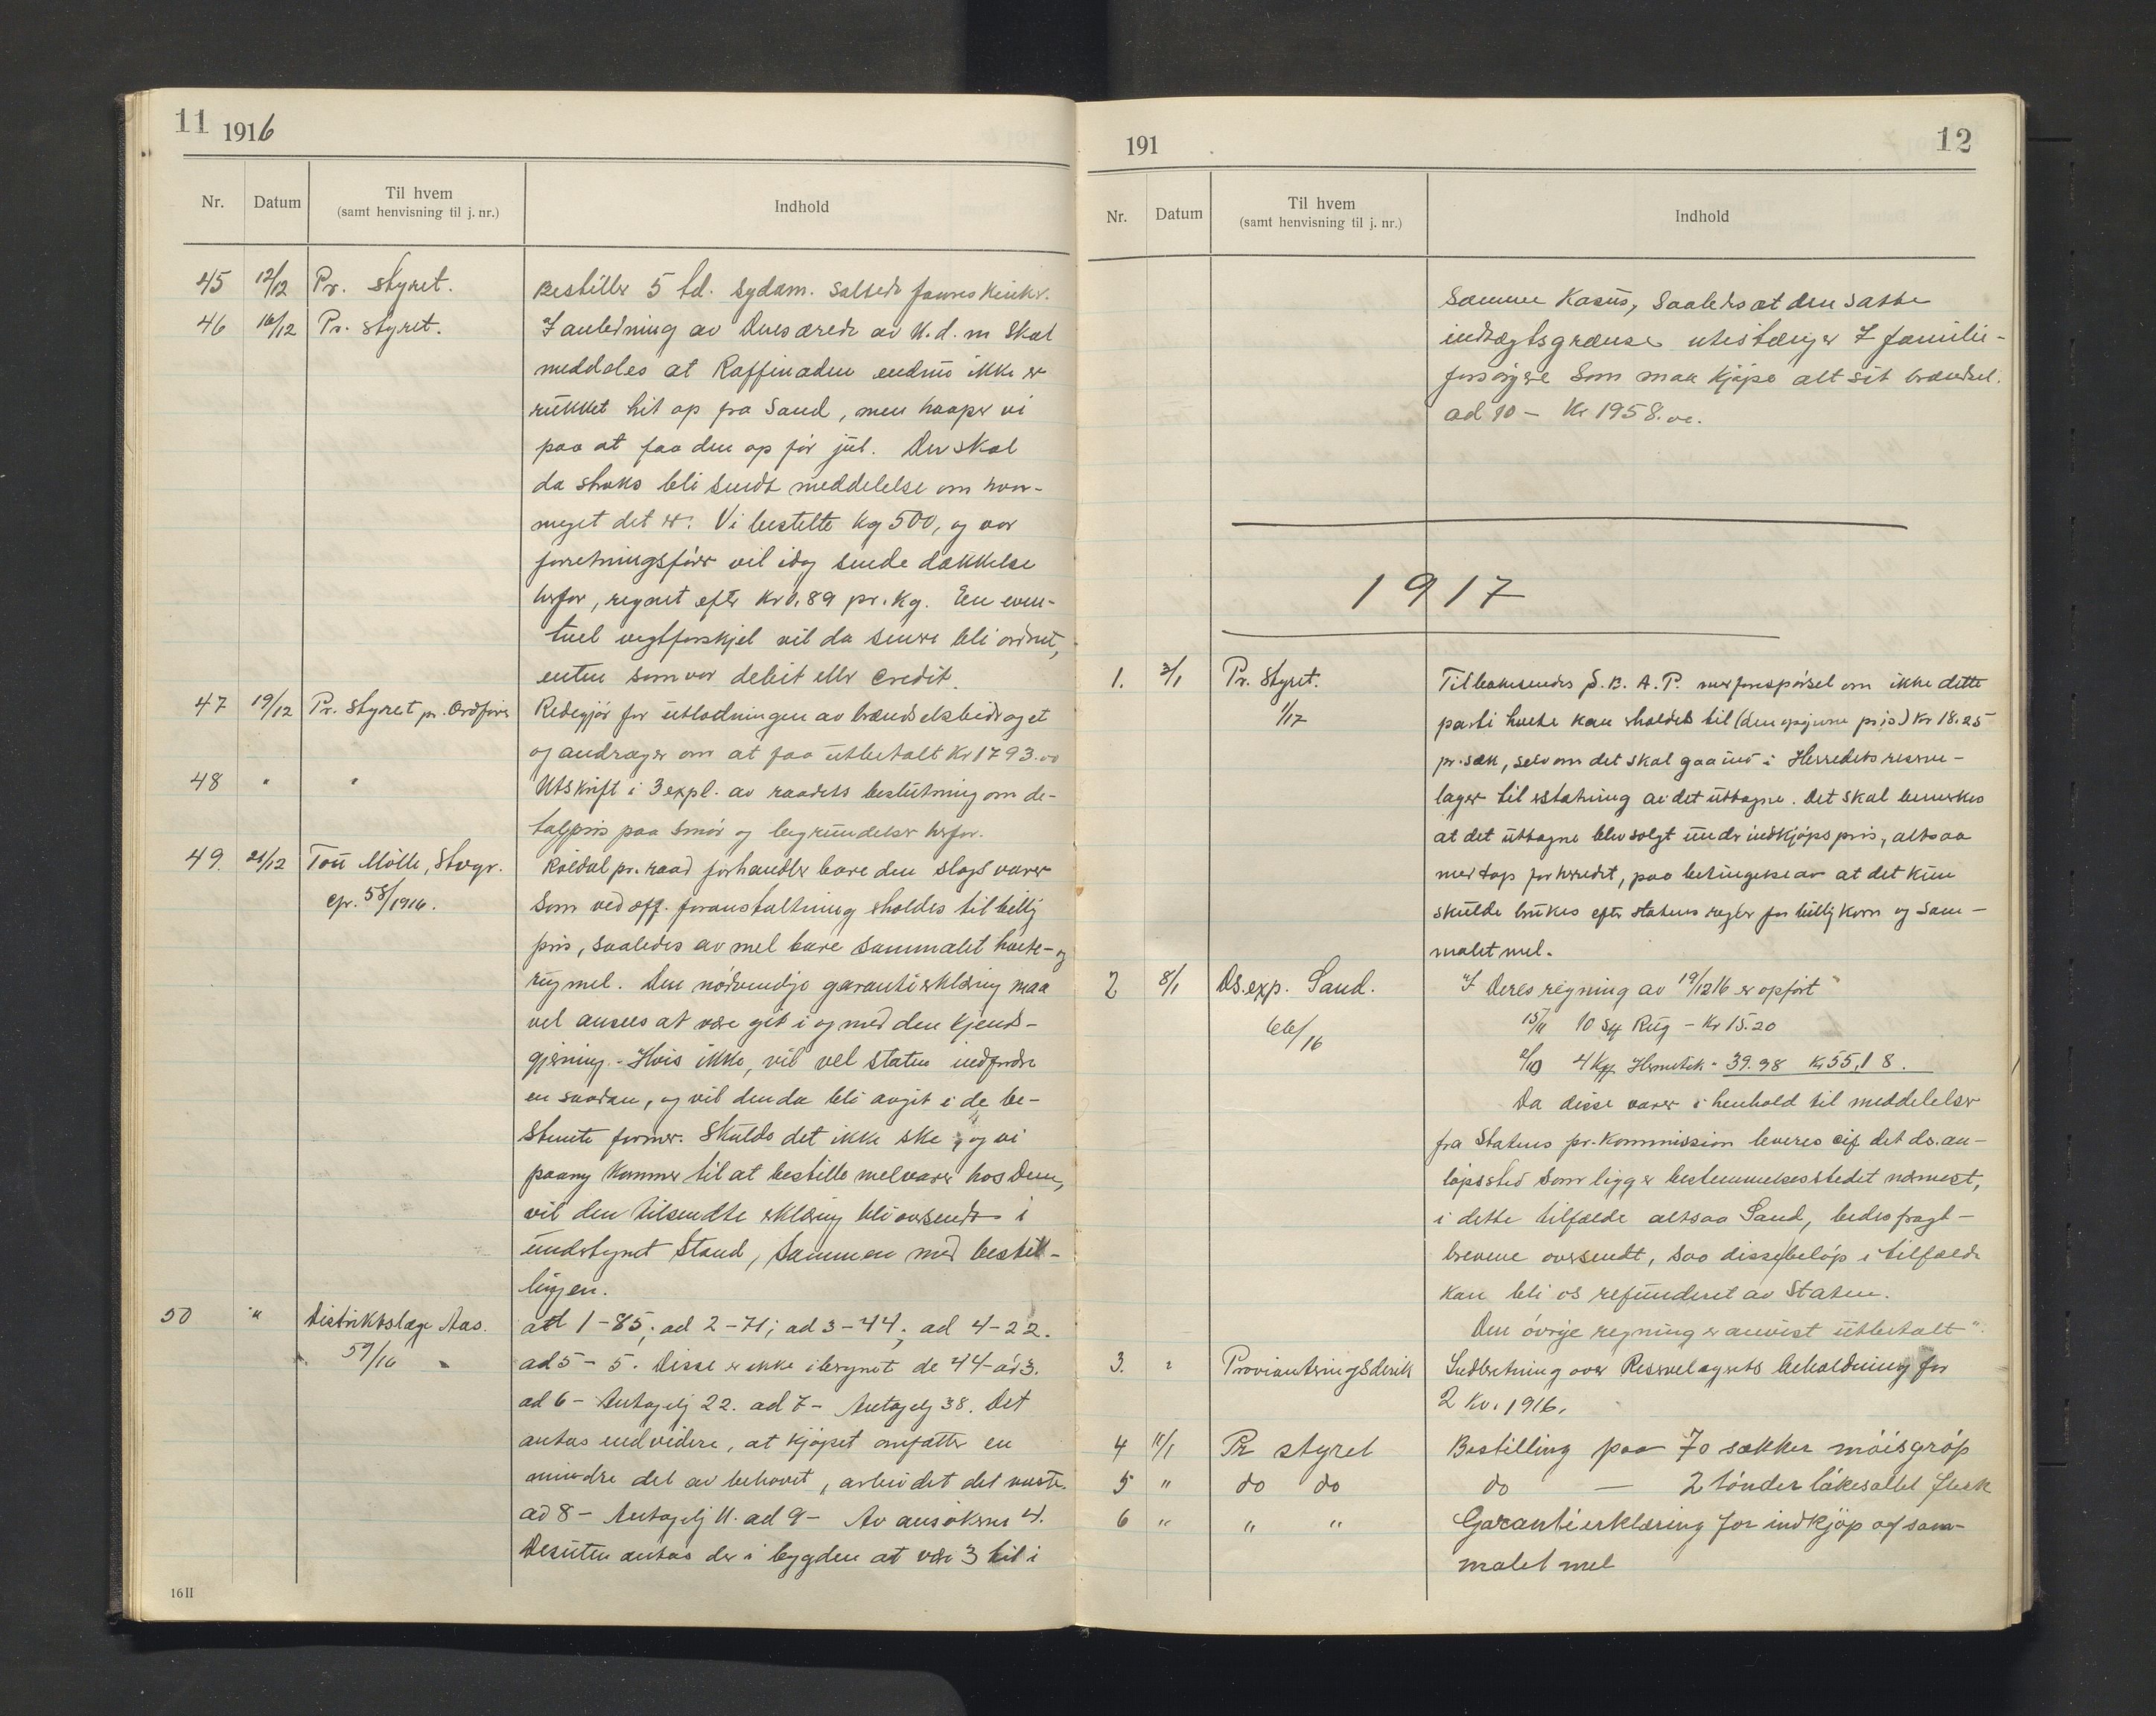 11 1916
Nr. Datum Til hvem (samt henvisning til j. nr.) Indhold
45 12/12 Pr. styret. Bestiller 5 td. sydam. saltede
46 16/12 Pr. styret. I anledning av Deres ærede av d. m skal
meddeles at Raffinaden endnu ikke er
rukket hit op fra Sand, men haaper vi
paa at faa den op før jul. Der skal
da straks bli sendt meddelelse om hvor-
meget det er. Vi bestilte kg 500, og vor
forretningsfører vil idag sende dækkelse
herfor, regnet efter Kr 0,89 pr. kg. En even-
tuel vegtforskjel vil da senere bli ordnet,
enten som vor debit eller credit.
47 19/12 Pr. styret pr. Ordfører Redegjør for utlodningen av brændselsbidraget
og andrager om at faa utbetalt Kr 1793.00
48 " " Utskrift i 3 expl. av raadets beslutning om de-
taljpris paa smør og begrundelse herfor.
49. 21/12 Tou Mølle, Stvgr. Røldal pr. raad forhandler bare den slags varer
cfr. 58/1916. som ved off. foranstaltning erholdes til billig
pris, saaledes av mel bare sammalet hvete- og
rugmel. Den nødvendige garantierklæring maa
vel ansees at være git i og med den kjends-
gjerning. - Hvis ikke, vil vel staten indfordre
en saadan, og vil den da bli avgit i de be-
stemte former. Skulde det ikke ske, og vi
paany kommer til at bestille melvarer hos Dem,
vil den tilsendte erklæring bli oversendt i
underskrevet stand, sammen med bestil-
lingen.
50 " Distriktslæge Aas. ad 1 - 85; ad 2 - 71; ad 3 - 44; ad 4 - 22.
59/16 ad 5 - 5. Disse er ikke iberegnet de 44 - ad 3.
ad 6 - Antagelig 22. ad 7 - Antagelig 38. Det
antas endvidere, at kjøpet omfatter en
mindre del av behovet, det
ad 8 - Antagelig 11. ad 9 - Av ansøkerne 4.
Desuten antas der i bygden at være 3 til i
191 12
Nr. Datum Til hvem (samt henvisning til j. nr.) Indhold
samme kasus, saaledes at den satte
indtægtsgrænse utestænger 7 familie-
forsørgere som maa kjøpe alt sit brændsel.
ad 10 - Kr 1958.oo.
1917
1. 3/1 Pr. styret. Tilbakesendes S. B. A. P. med forespørsel om ikke dette
1/17 parti hvete kan erholdes til (den opgivne pris) Kr 18.25
pr. sæk, selv om det skal gaa ind i Herredets reserve-
lager til erstatning av det uttagne. Det skal bemerkes
at det uttagne blev solgt under indkjøpspris, altsaa
med tap for herredet, paa betingelse av at det kun
skulde brukes efter statens regler for billig korn og sam-
malet mel.
2 8/1 Ds. exp. Sand. "I Deres regning av 19/12 16 er opført
66/16 15/11 10 sæk Rug - Kr 15.20
4 Hermetik - 39.98 Kr 55,18.
Da disse varer i henhold til meddelelse
fra Statens pr. kommission leveres cif det ds. an-
løpssted som ligger bestemmelsesstedet nærmest,
i dette tilfælde altsaa Sand, bedes fragt-
brevene oversendt, saa disse beløp i tilfælde
kan bli os refunderet av Staten.
Den øvrige regning er anvist utbetalt".
3. " Provianteringsdirek Indberetning over Reservelagrets beholdning for
2 Kv. 1916.
4 11/1 Pr styret Bestilling paa 70 sækker maisgrøp
5 " do do do — 2 tønder lakesaltet flesk
6 " " " Garantierklæring for indkjøp af sam-
malet mel
16 II